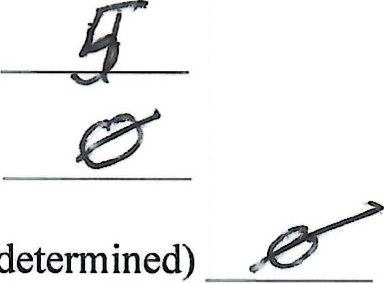 5
0
determined) 0